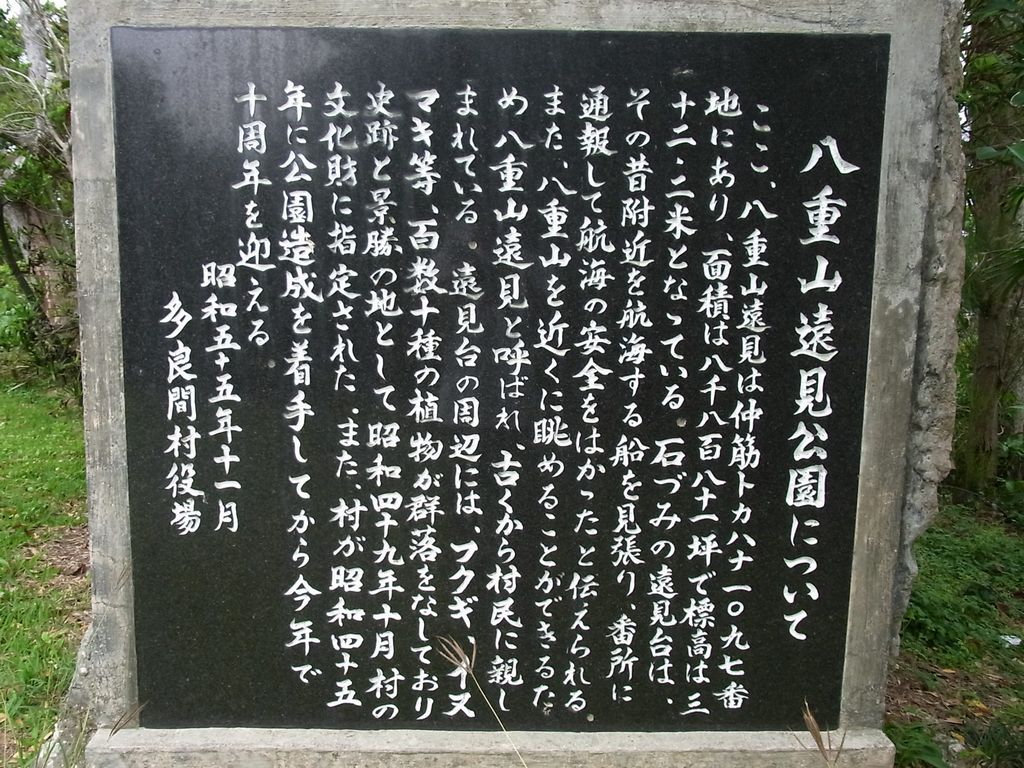 八重山遠見公園について
ここ、八重山遠見は仲筋トカハナ一〇九七番
地にあり、面積は八千八百八十一坪で標高は三
十二・二米となっている。石づみの遠見台は、
その昔附近を航海する船を見張り、番所に
通報して航海の安全をはかったと伝えられる。
また、八重山を近くに眺めることができるた
め八重山遠見と呼ばれ、古くから村民に親し
まれている。遠見台の周辺には、フクギ、イヌ
マキ等、百数十種の植物が群落をなしており
史跡と景勝の地として昭和四十九年十月村の
文化財に指定された。また、村が昭和四十五
年に公園造成を着手してから今年で
十周年を迎える
昭和五十五年十一月
多良間村役場